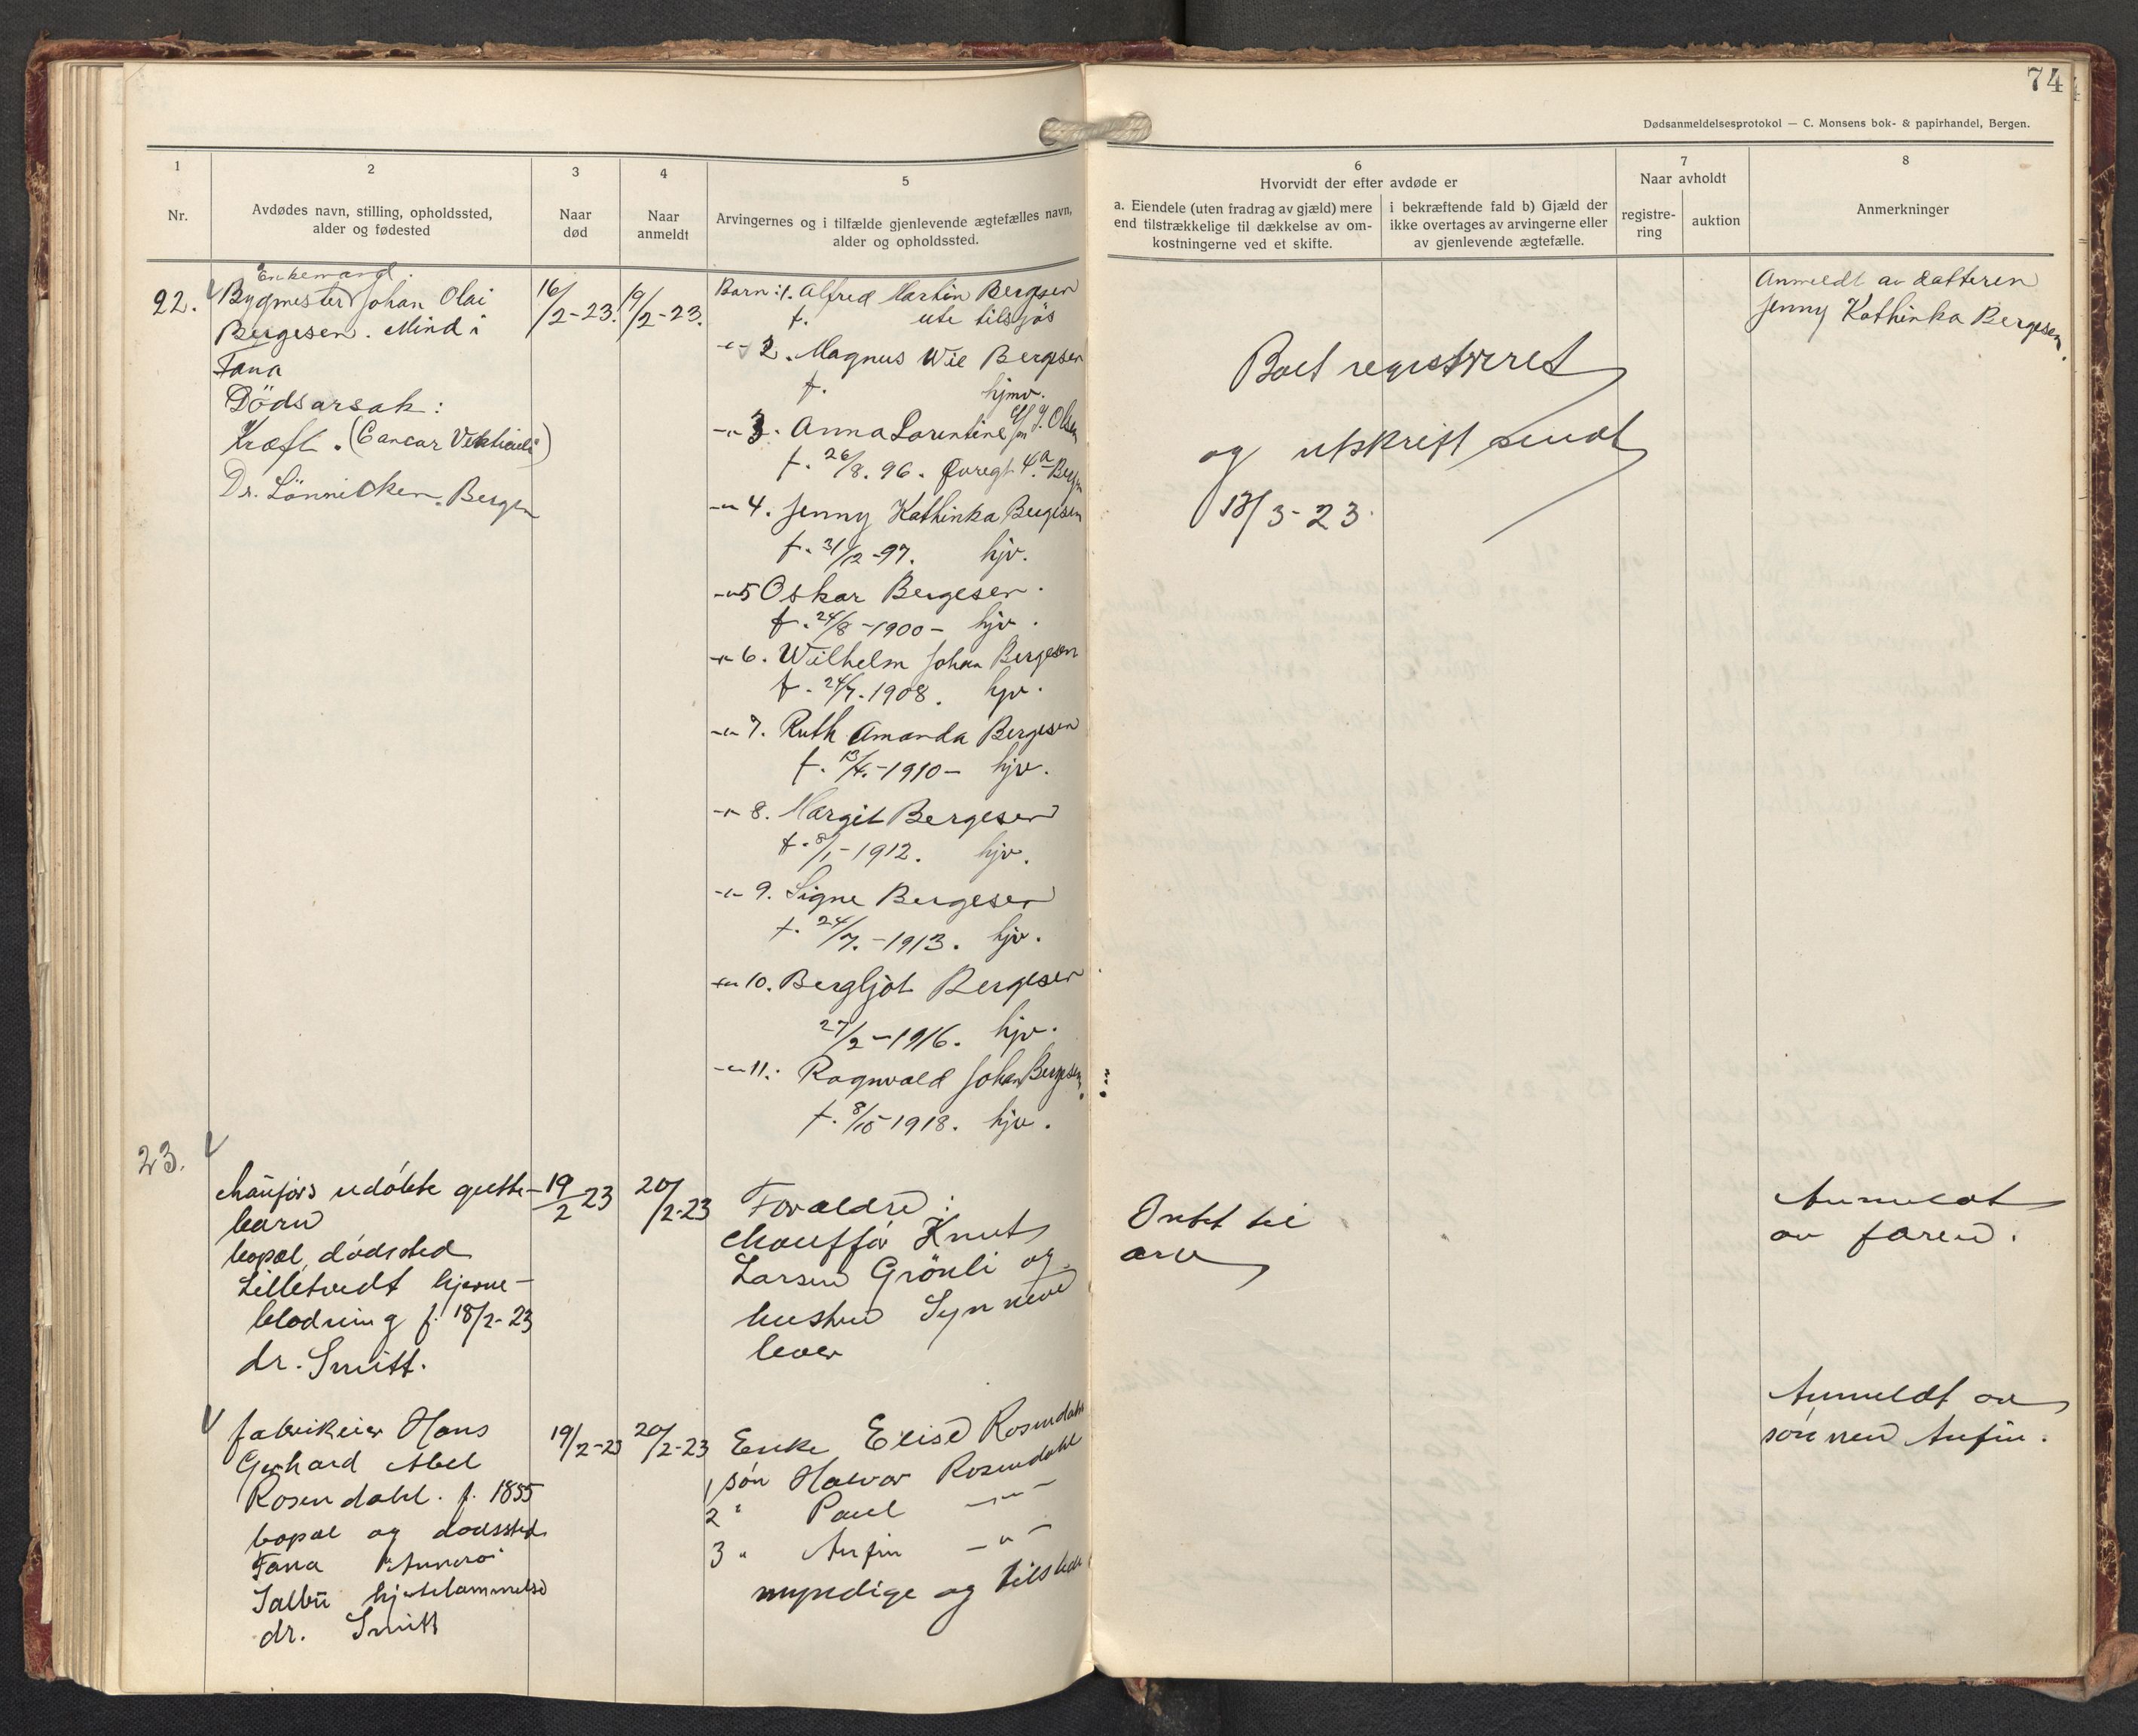 74
Dødsanmeldelsesprotokol — C. Monsens bok- & papirhandel, Bergen.
1
Nr.
2
Avdødes navn, stilling, opholdssted,
alder og fødested
3
Naar
død
4
Naar
anmeldt
5
Arvingernes og i tilfælde gjenlevende ægtefælles navn,
alder og opholdssted.
6
Hvorvidt der efter avdøde er
a. Eiendele (uten fradrag av gjæld) mere
end tilstrækkelige til dækkelse av om-
kostningerne ved et skifte.
i bekræftende fald b) Gjæld der
ikke overtages av arvingerne eller
av gjenlevende ægtefælle.
7
Naar avholdt
registre-
ring
auktion
8
Anmerkninger
22.
Enkemand.
Bygmester Johan Olai
Bergesen. Mind i
Fana
Dödsarsak:
Kræft. (Cancer
Dr. Lönnecken. Bergen
16/2-23.
19/2-23.
Barn: 1. Alfred Martin Bergesen
f. ute tilsjös
-"- 2. Magnus Wie Bergesen
f. hjmv.
-"- 3. Anna Lorentine Olsen
f. 26/8. 96. 4a Bergen
-"- 4. Jenny Kathinka Bergesen
f. 31/12-97. hjv.
-"- 5 Oskar Bergesen.
f. 24/8-1900- hjv.
-"- 6. Wilhelm Johan Bergesen
f. 24/7.1908. hjv.
-"- 7. Ruth Amanda Bergesen
f. 13/4.-1910- hjv.
-"- 8. Margit Bergesen
f. 8/1-1912. hjv.
-"- 9. Signe Bergesen
f. 24/7.-1913. hjv.
-"- 10. Bergljot Bergesen
27/2-1916. hjv.
-"- 11. Ragnvald Johan Bergesen.
f. 8/10-1918. hjv.
Boet registreret
og utskrift sendt
13/3-23.
Anmeldt av datteren
Jenny Kathinka Bergesen.
23.
chaufførs udöbte gutte-
barn
bopæl, dödssted
Lilletvedt hjerne-
blødning f. 18/2-23
dr. Smitt.
19/2 23
20/2-23
Forældre:
chauffør Knut
Larsen Grönli og
hustru Synneve
lever
Intet til
arv
Anmeldt
av faren.
fabrikeier Hans
Gerhard Abel
Rosendahl. f. 1855
bopæl og dødssted
Fana
hjertelammelse
dr. Smitt
19/2-23
20/2-23
Enke Elise Rosendahl
1 søn Halvor Rosendahl
2 " Paul -"-
3 " Anfin -"-
myndige og tilstede
Anmeldt av
sønnen Anfin.